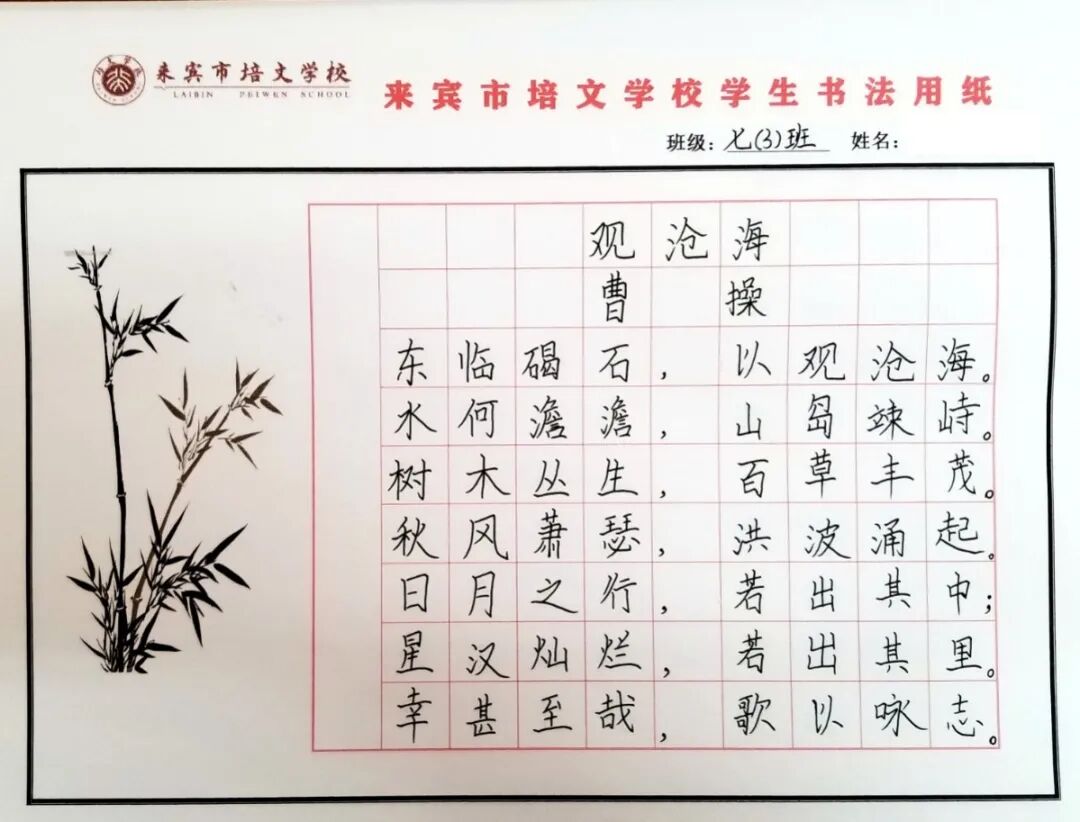 来宾市培文学校
LAIBIN PEIWEN SCHOOL
来宾市培文学校学生书法用纸
班级：七(3)班 姓名：
观沧海
曹操
东临碣石，以观沧海。
水何澹澹，山岛竦峙。
树木丛生，百草丰茂。
秋风萧瑟，洪波涌起。
日月之行，若出其中；
星汉灿烂，若出其里。
幸甚至哉，歌以咏志。